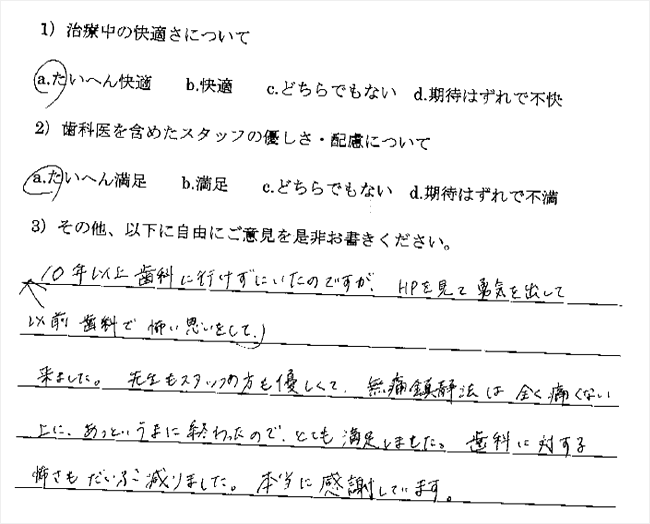 1）治療中の快適さについて
a.たいへん快適　b.快適　c.どちらでもない　d.期待はずれで不快
2）歯科医を含めたスタッフの優しさ・配慮について
a.たいへん満足　b.満足　c.どちらでもない　d.期待はずれで不満
3）その他、以下に自由にご意見を是非お書きください。
10年以上歯科に行けずにいたのですが、HPを見て勇気を出して
以前歯科で怖い思いをして、)
来ました。先生もスタッフの方も優しくて、無痛鎮静法は全く痛くない
上に、あっというまに終わったので、とても満足しました。歯科に対する
怖さもだいぶ減りました。本当に感謝しています。